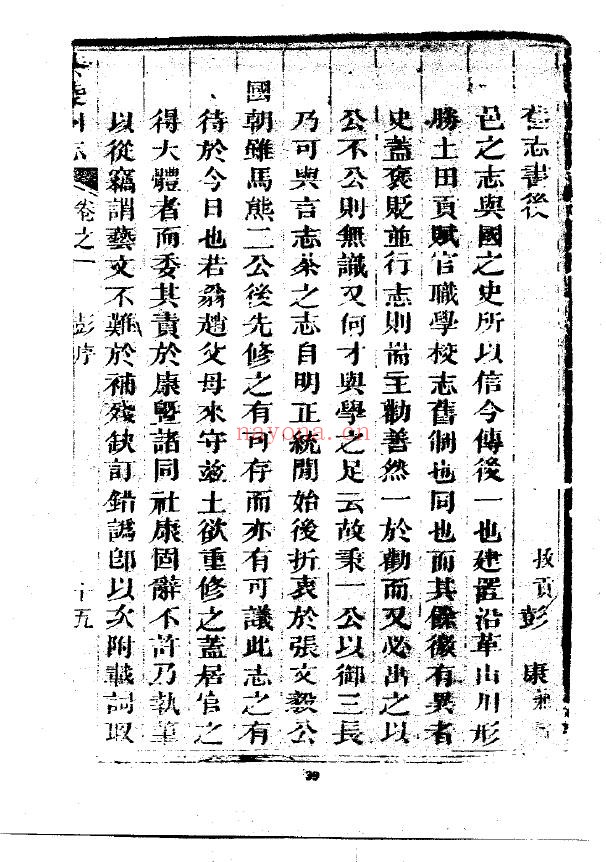 舊志書後
拔貢彭康
邑之志與國之史所以信今傳後一也建置沿革山川形
勝土田貢賦官職學校志舊制也同也而其餘微有異者
史蓋褒貶並行志則耑主勸善然一於勸而又必出之以
公不公則無識又何才與學之足云故秉一公以御三長
乃可與言志茶之志自明正統間始後折衷於張文毅公
國朝雖馬熊二公後先修之有可存而亦有可議此志之有
待於今日也若翁趙父母來守茲土欲重修之蓋居官之
得大體者而委其責於康曁諸同社康固辭不許乃執筆
以從竊謂藝文不難於補殘缺訂錯譌卽以次附載詞取
茶陵州志
卷之一
彭序
十五
39
nayona.cn